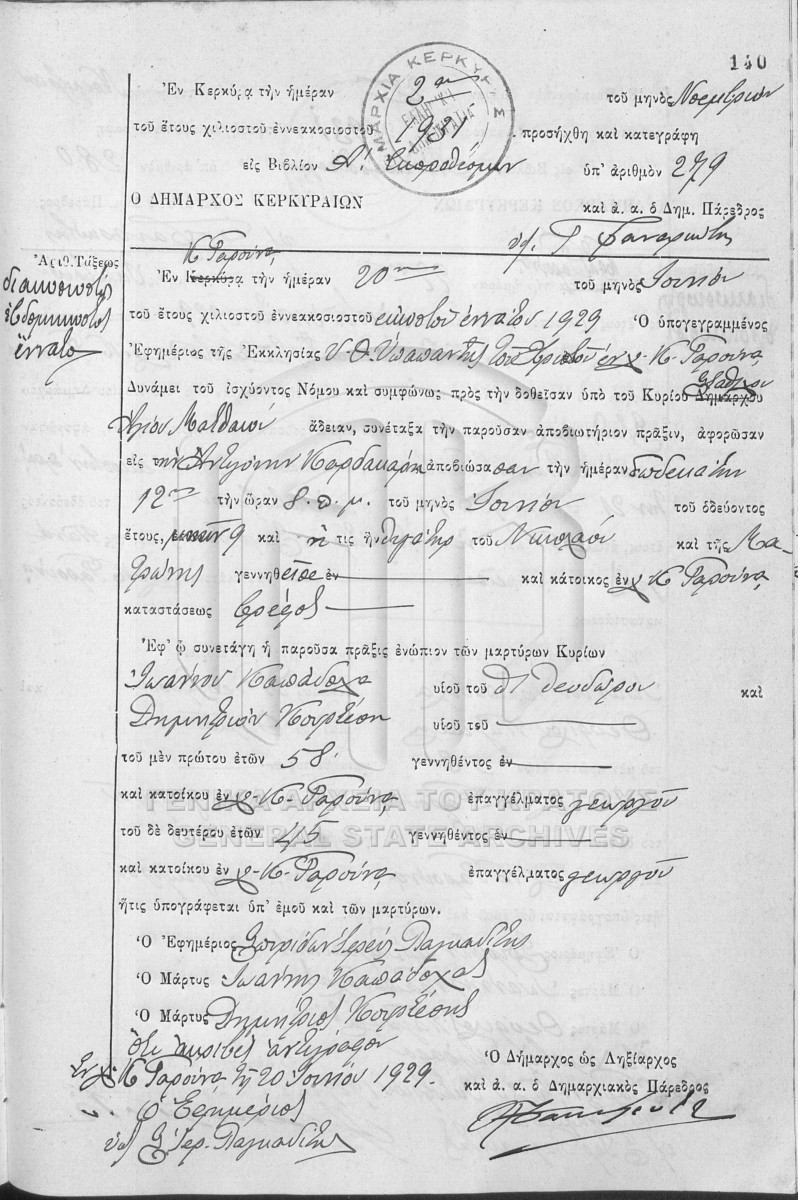 140
Ἐν Κερκύρᾳ τὴν ἡμέραν 2αν τοῦ μηνὸς Νοεμβρίου
τοῦ ἔτους χιλιοστοῦ ἐννεακοσιοστοῦ 1931 προσήχθη καὶ κατεγράφη
εἰς Βιβλίον Α' Ἐκπροθέσμων ὑπ' ἀριθμὸν 279
Ο ΔΗΜΑΡΧΟΣ ΚΕΡΚΥΡΑΙΩΝ
καὶ ἀ. α. ὁ Δημ. Πάρεδρος
ΔΗΜΑΡΧΙΑ ΚΕΡΚΥΡΑΣ
Ἀριθ. Τάξεως
διακοσιοστὸν
ἑβδομηκοστὸν
ἔννατον
Κ Γαρούνᾳ
Ἐν Κερκύρᾳ τὴν ἡμέραν 20ην τοῦ μηνὸς Ἰουνίου
τοῦ ἔτους χιλιοστοῦ ἐννεακοσιοστοῦ εἰκοστοῦ ἐννάτου 1929 Ὁ ὑπογεγραμμένος
Ἐφημέριος τῆς Ἐκκλησίας Υ. Θ. Ὑπαπαντῆς τοῦ Χριστοῦ ἐν χ. Κ. Γαρούνᾳ
Δυνάμει τοῦ ἰσχύοντος Νόμου καὶ συμφώνως πρὸς τὴν δοθεῖσαν ὑπὸ τοῦ Κυρίου Δημάρχου
Ἁγίου Ματθαίου ἄδειαν, συνέταξα τὴν παροῦσαν ἀποβιωτήριον πρᾶξιν, ἀφορῶσαν
εἰς τὴν Ἀντιγόνην Καρδακάρη ἀποβιώσασαν τὴν ἡμέραν δωδεκάτην
12ην τὴν ὥραν 8. π. μ. τοῦ μηνὸς Ἰουνίου τοῦ ὁδεύοντος
ἔτους, μηνῶν 9 καὶ ἥ τις ἦν θυγάτηρ τοῦ Νικολάου καὶ τῆς Μα-
τρώνης γεννηθεῖσα ἐν καὶ κάτοικος ἐν χ Κ Γαρούνᾳ
καταστάσεως βρέφος
Ἐφ' ᾧ συνετάγη ἡ παροῦσα πρᾶξις ἐνώπιον τῶν μαρτύρων Κυρίων
Ἰωάννου Καπάδοχα υἱοῦ τοῦ Θεοδώρου καὶ
Δημητρίου Κουρτέση υἱοῦ τοῦ
τοῦ μὲν πρώτου ἐτῶν 58 γεννηθέντος ἐν
καὶ κατοίκου ἐν χ. Κ. Γαρούνᾳ ἐπαγγέλματος γεωργοῦ
ΓΕΝΙΚΑ ΑΡΧΕΙΑ ΤΟΥ ΚΡΑΤΟΥΣ
τοῦ δὲ δευτέρου ἐτῶν 45 γεννηθέντος ἐν
GENERAL STATE ARCHIVES
καὶ κατοίκου ἐν χ. Κ. Γαρούνᾳ ἐπαγγέλματος γεωργοῦ
ἥτις ὑπογράφεται ὑπ' ἐμοῦ καὶ τῶν μαρτύρων.
Ὁ Ἐφημέριος Σπυρίδων Ἱερεὺς Παγιαδίτης
Ὁ Μάρτυς Ἰωάννης Καπάδοχας
Ὁ Μάρτυς Δημήτριος Κουρτέσης
Ὅτι ἀκριβὲς ἀντίγραφον
Ἐν χ. Κ Γαρούνᾳ τῇ 20 Ἰουνίου 1929.
Ὁ Ἐφημέριος
Ὁ Δήμαρχος ὡς Ληξίαρχος
καὶ ἀ. α. ὁ Δημαρχιακὸς Πάρεδρος